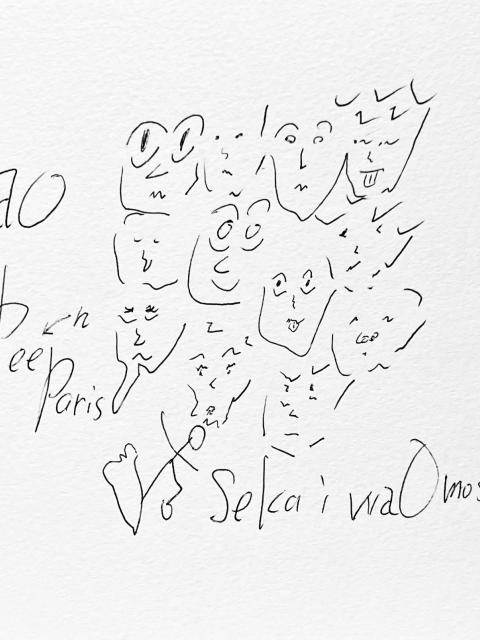 aO
b
een
Paris
Sekai wa Omos